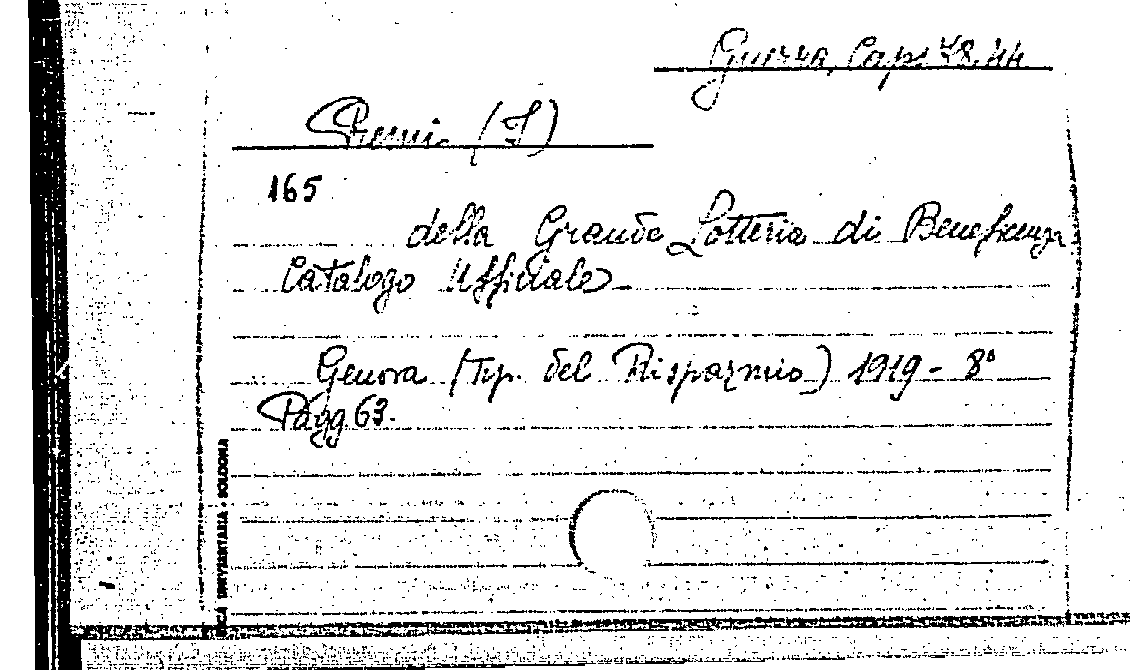 Guerra, Caps 78.44
Premi (I)
165
della Grande Lotteria di Beneficenza
Catalogo Ufficiale
Genova (Tip. del Risparmio) 1919 - 8°
Pagg 63.
UNIVERSITARIA • BOLOGNA